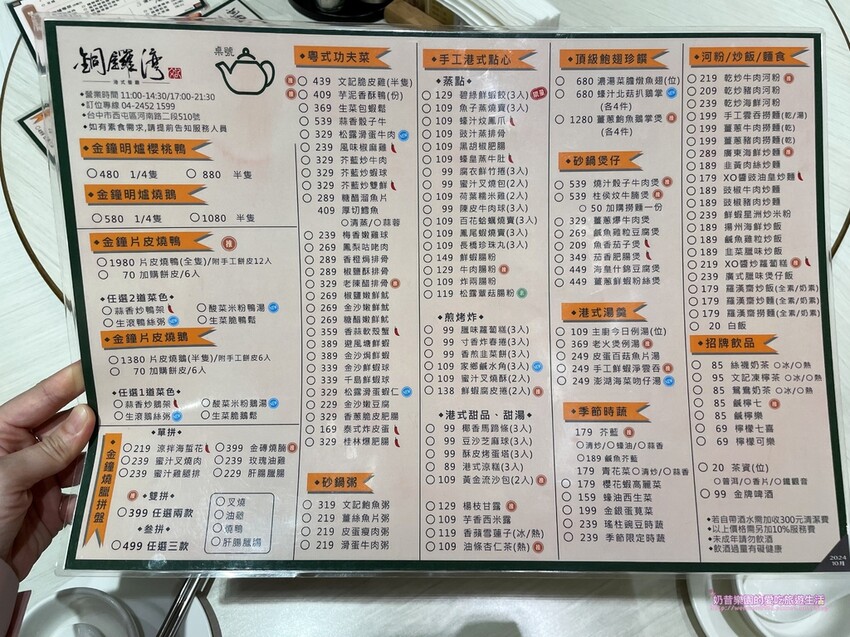 銅鑼灣
港式餐廳
桌號
●營業時間 11:00-14:30/17:00-21:30
●訂位專線 04-2452 1599
●台中市西屯區河南路二段510號
●如有素食需求,請提前告知服務人員
◆金鐘明爐櫻桃鴨
480 1/4隻 880 半隻
◆金鐘明爐燒鵝
580 1/4隻 1080 半隻
◆金鐘片皮燒鴨
1980 片皮燒鴨(全隻)/附手工餅皮12人
70 加購餅皮/6人
◆任選2道菜色◆
蒜香炒鴨架 酸菜米粉鴨湯
生滾鴨絲粥 生菜脆鴨鬆
◆金鐘片皮燒鵝
1380 片皮燒鵝(半隻)/附手工餅皮6人
70 加購餅皮/6人
◆任選1道菜色◆
蒜香炒鵝架 酸菜米粉鵝湯
生滾鵝絲粥 生菜脆鵝鬆
◆金鐘燒臘拼盤
◆單拼◆
219 涼拌海蜇花 399 金磚燒腩
239 蜜汁叉燒肉 239 玫瑰油雞
239 蜜汁雞腿排 229 肝腸臘腸
◆雙拼◆
399 任選兩款
◆叁拼◆
499 任選三款
叉燒
油雞
燒鴨
肝腸臘腸
◆粵式功夫菜
439 文記脆皮雞(半隻)
409 芋泥香酥鴨(份)
369 生菜包蝦鬆
539 蒜香骰子牛
329 松露滑蛋牛肉
239 風味椒麻雞
329 芥藍炒牛肉
329 芥藍炒蝦球
329 芥藍炒雙鮮
289 糖醋溜魚片
409 厚切鱈魚
清蒸/蒜蓉
239 梅香嫩雞球
269 鳳梨咕咾肉
289 香橙焗排骨
289 椒鹽酥排骨
329 老陳醋排骨
269 椒鹽嫩鮮魷
269 金沙嫩鮮魷
269 糖醋嫩鮮魷
359 香蒜軟殼蟹
389 避風塘鮮蝦
389 金沙焗鮮蝦
339 金沙鮮蝦球
339 千島鮮蝦球
329 松露滑蛋蝦仁
229 金沙嫩豆腐
329 香蔥脆皮肥腸
169 泰式炸皮蛋
329 桂林爆肥腸
◆砂鍋粥
319 文記鮑魚粥
219 薑絲魚片粥
219 皮蛋瘦肉粥
219 滑蛋牛肉粥
◆手工港式點心
◆蒸點◆
129 碧綠鮮蝦餃(3人)
109 魚子蒸燒賣(3人)
109 蠔汁炆鳳爪
109 豉汁蒸排骨
109 黑胡椒肥腸
109 蠔皇蒸牛肚
99 腐衣鮮竹捲(3人)
99 蜜汁叉燒包(2人)
109 荷葉糯米雞(2人)
99 陳皮牛肉球(3人)
109 百花蛤蠣燒賣(3人)
109 鳳尾蝦燒賣(3人)
109 長橋珍珠丸(3人)
149 鮮蝦腸粉
129 牛肉腸粉
109 炸兩腸粉
119 松露蕈菇腸粉
◆煎烤炸◆
99 臘味蘿蔔糕(3人)
99 寸香炸春捲(3人)
99 香煎韭菜餅(3人)
109 家鄉鹹水角(3人)
109 蜜汁叉燒酥(2人)
138 鮮蝦腐皮捲(2人)
◆港式甜品、甜湯◆
99 椰香馬蹄條(3人)
99 豆沙芝麻球(3人)
99 酥皮烤蛋塔(3人)
89 港式涼糕(3人)
109 黃金流沙包(2人)
129 楊枝甘露
109 芋香西米露
119 香頭雪蓮子(冰/熱)
109 油條杏仁茶(熱)
◆頂級鮑翅珍饌
680 清湯菜膽燉魚翅(位)
680 蠔汁北菇扒鵝掌
(各4件)
1280 薑蔥鮑魚鵝掌煲
(各4件)
◆砂鍋煲仔
539 燒汁骰子牛肉煲
539 柱侯炆牛腩煲
50 加購撈麵一份
329 薑蔥爆牛肉煲
269 鹹魚雞粒豆腐煲
209 魚香茄子煲
349 茄香肥腸煲
449 海皇什錦豆腐煲
449 薑蔥鮮蝦粉絲煲
◆港式湯羹
109 主廚今日例湯(位)
369 老火煲例湯
249 皮蛋百菇魚片湯
249 手工鮮蝦淨雲吞
249 澎湖海菜吻仔湯
◆季節時蔬
179 芥藍
清炒/蠔油/蒜香
189 鹹魚芥藍
179 青花菜 清炒/蒜香
179 櫻花蝦高麗菜
159 蠔油西生菜
199 金銀蛋莧菜
239 瑤柱豌豆時蔬
239 季節限定時蔬
◆河粉/炒飯/麵食
219 乾炒牛肉河粉
209 乾炒豬肉河粉
239 乾炒海鮮河粉
199 手工雲吞撈麵(乾/湯)
199 薑蔥牛肉撈麵(乾)
199 薑蔥豬肉撈麵(乾)
289 廣東海鮮炒麵
189 韭黃肉絲炒麵
179 XO醬豉油皇炒麵
189 豉椒牛肉炒麵
189 豉椒豬肉炒麵
239 鮮蝦星洲炒米粉
189 揚州海鮮炒飯
189 鹹魚雞粒炒飯
189 韭菜臘味炒飯
219 XO醬炒蘿蔔糕
239 廣式臘味煲仔飯
179 羅漢齋炒飯(全素/奶素)
179 羅漢齋炒麵(全素/奶素)
179 羅漢齋撈麵(全素/奶素)
20 白飯
◆招牌飲品
85 絲襪奶茶 冰/熱
95 文記凍檸茶 冰/熱
85 鴛鴦奶茶 冰/熱
85 鹹檸七
85 鹹檸樂
69 檸檬七喜
69 檸檬可樂
20 茶資(位)
普洱/香片/鐵觀音
99 金牌啤酒
◆若自帶酒水需加收300元清潔費
◆以上價格需另加10%服務費
◆未成年請勿飲酒
◆飲酒過量有礙健康
2024
10月
奶昔樂園的愛吃旅遊生活